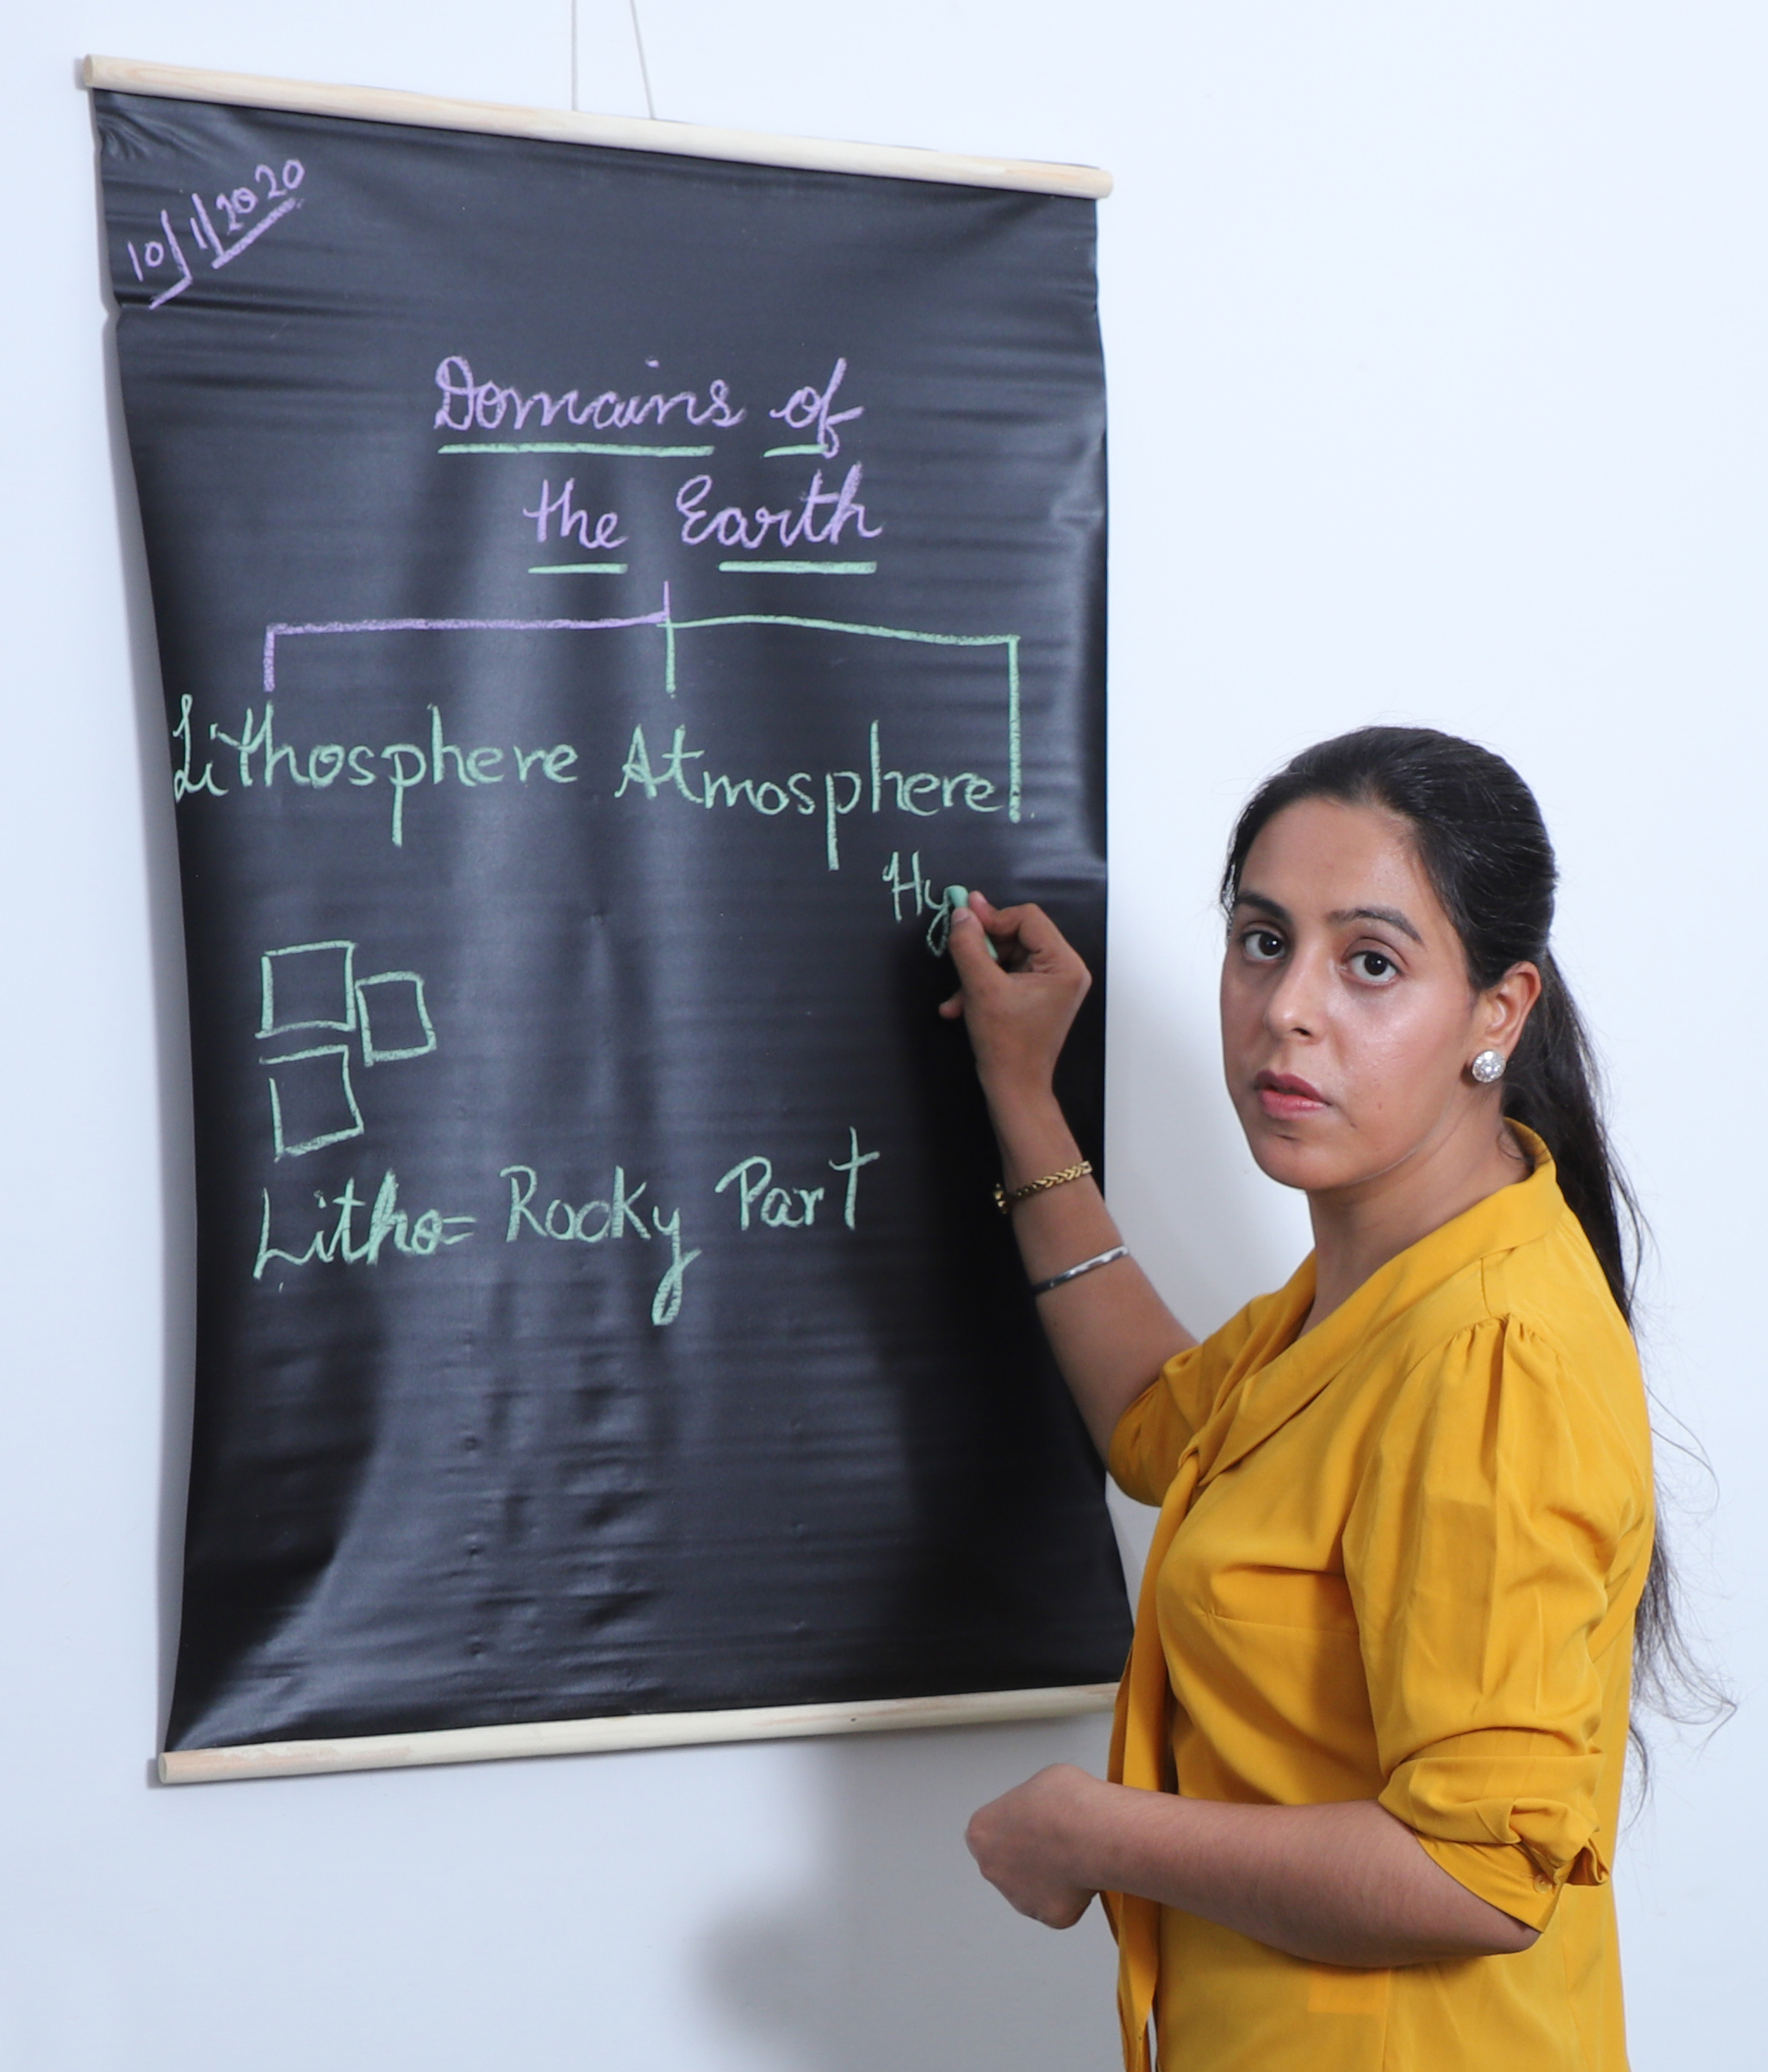 10/1/2020
Domains of
the Earth
Lithosphere Atmosphere
Hy
Litho= Rocky Part